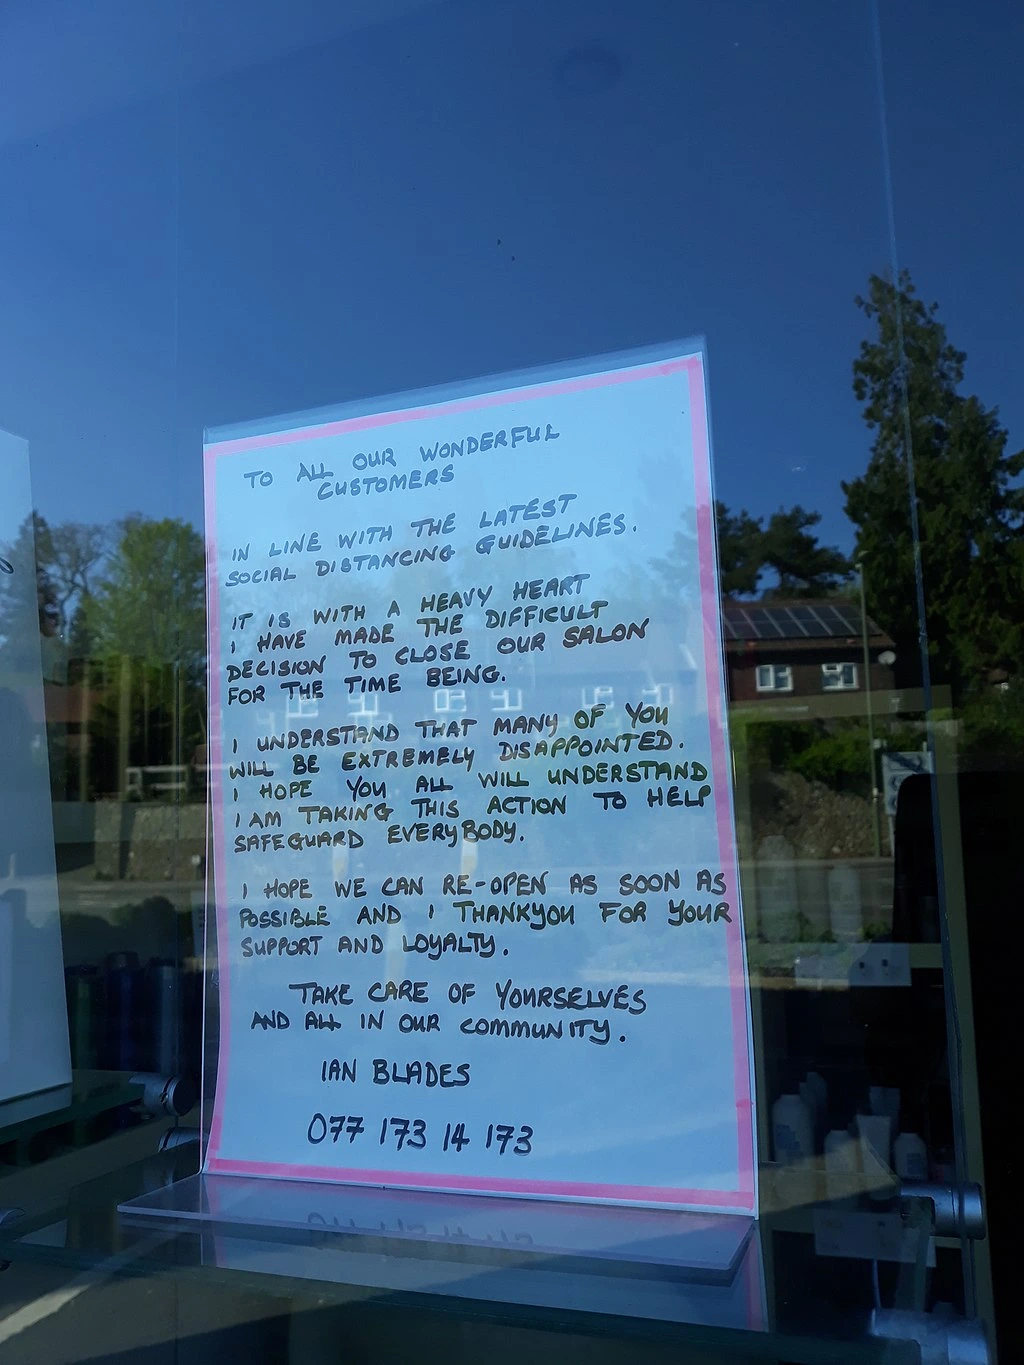 TO ALL OUR WONDERFUL
CUSTOMERS
IN LINE WITH THE LATEST
SOCIAL DISTANCING GUIDELINES.
IT IS WITH A HEAVY HEART
I HAVE MADE THE DIFFICULT
DECISION TO CLOSE OUR SALON
FOR THE TIME BEING.
I UNDERSTAND THAT MANY OF YOU
WILL BE EXTREMELY DISAPPOINTED.
I HOPE YOU ALL WILL UNDERSTAND
I AM TAKING THIS ACTION TO HELP
SAFEGUARD EVERYBODY.
I HOPE WE CAN RE-OPEN AS SOON AS
POSSIBLE AND I THANKYOU FOR YOUR
SUPPORT AND LOYALTY.
TAKE CARE OF YOURSELVES
AND ALL IN OUR COMMUNITY.
IAN BLADES
077 173 14 173